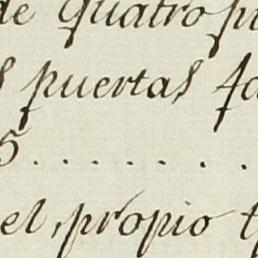 de quatro p
s puertas fa
5 . . . . . . . .
el, propio t